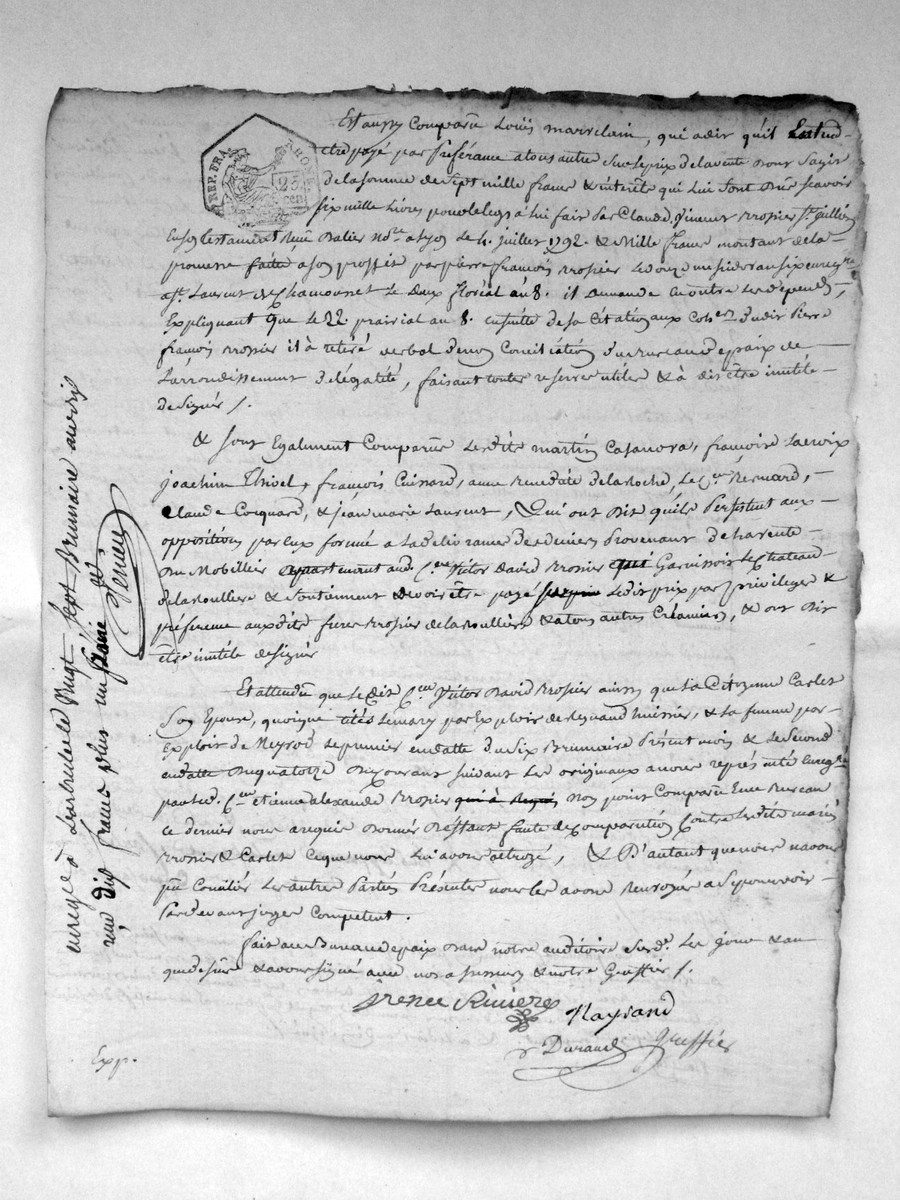 REP. FRA.
RHONE
25
cen
Est aussy Comparu Louis marielain, qui a dit qu'il Entend
Etre payé par Préférance a tous autre Sur le prix de la vente dont s'agit
de la somme de Sept mille francs & intérêts qui Lui sont dûs scavoir
Six mille Livres pour le legs a lui fait par Claude Vincent Rrosier St
En son testament Reçu Dalier Nore a Lyon le 4. juillet 1792. & Mille francs montant de la
promesse faitte a son proffit par pierre françois Rrosier le douze messidor an six enregre
a St. Laurent de Chamousset le Deux floréal an 8. il demande en outre les dépends,
Expliquant que le 22 prairial an 8. ensuitte de sa Citation aux Coher. dudit Pierre
françois Rrosier il à retiré verbal de non Conciliation du Bureau de paix de
L'arrondissement de l'égalité, faisant toutes reserves utiles & à dit être inutile
de Signer /.
& sont Egalement Comparus lesdits martin Casanova, françoise Lacroix
joachim Thivel, françois Cuissard, anne Benedate delaroche, Le Cen Bernard,
Claude Cocquard, & jean marie Laurent, Qui ont Dit qu'ils Persistent aux
oppositions par Eux formé a la delivrance des deniers Provenant de la vente
du Mobillier appartenant aud. Cen Victor David Rrosier qui Garnissoit le Chateau
de la roulliere & soutiennent devoir être payé sur prix ledit prix par privileges &
préférence auxdits freres Rrosier de la roulliere & a tous autres Créanciers, & ont Dit
être inutile de signer
Et attendu que ledit Cen Victor David Rrosier ainsy que la Citoyenne Carlet
Son Epouse, quoique cités le mary par Exploit de Regnaud huissier, & la femme par
Exploit de Neyrod le premier en datte du Six Brumaire Présent mois & le Second
en datte du quatorze Dix Courant suivant les originaux a nous representé enregré
par led. Cen etienne alexandre Rrosier qui à Requis Non point Comparu En ce Bureau
ce dernier nous a requis donner Déffaut faute de Comparution Contre lesdits mariés
Rrosier & Carlet Ce que nous Lui avons octroyé, & D'autant que nous n'avons
pu Concilier Les autres Parties Présentes nous les avons Renvoyés a se pourvoir
Pardevant juges Competent.
fait au Bureau de paix Dans notre auditoire Susd. Les jour & an
que dessus & avons signé avec nos assesseurs & notre Greffier /.
irenee Riviere
Naysand
Durand Greffier
Exp.
enregré à Larbresle le Vingt Sept Brumaire an dix
reçu dix francs plus un franc de